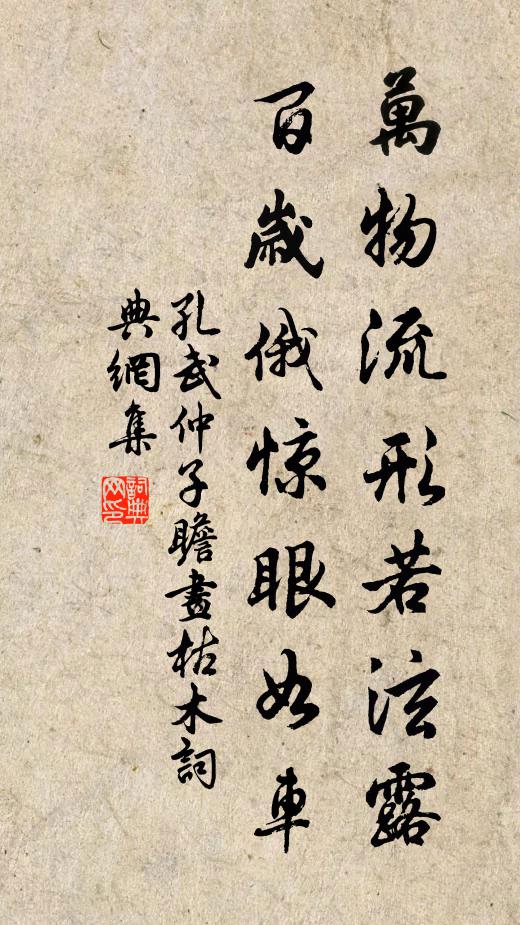 萬物流形若泫露
百歲俄惊眼如車
孔武仲子瞻畫枯木詞
典網集
詞典网印